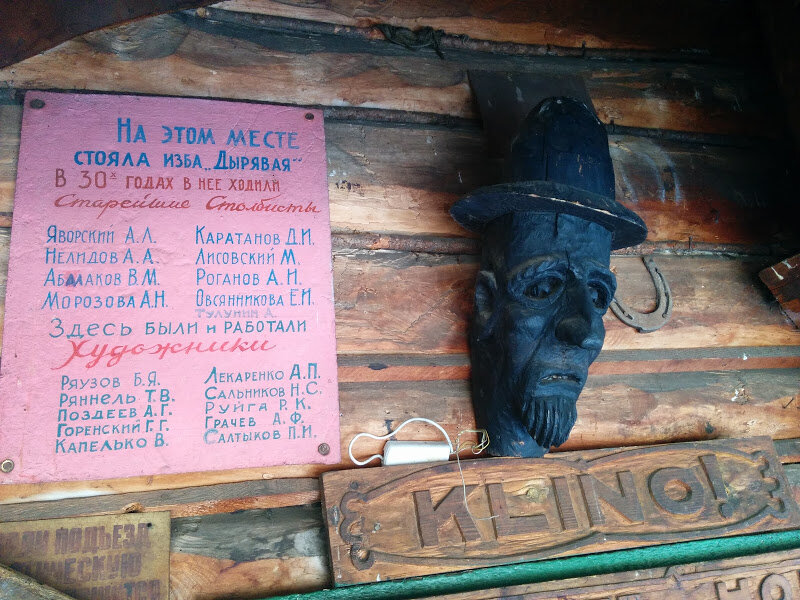 На этом месте
стояла изба „Дырявая“
В 30х годах в нее ходили
Старейшие Столбисты
Яворский А.Л.
Нелидов А.А.
Абалаков В.М.
Морозова А.Н.
Каратанов Д.И.
Лисовский М.
Роганов А.И.
Овсянникова Е.И.
Тулунин А.
Здесь были и работали
Художники
Ряузов Б.Я.
Ряннель Т.В.
Поздеев А.Г.
Горенский Г.Г.
Капелько В.
Лекаренко А.П.
Сальников Н.С.
Руйга Р.К.
Грачев А.Ф.
Салтыков П.И.
KLINO!
подъезд